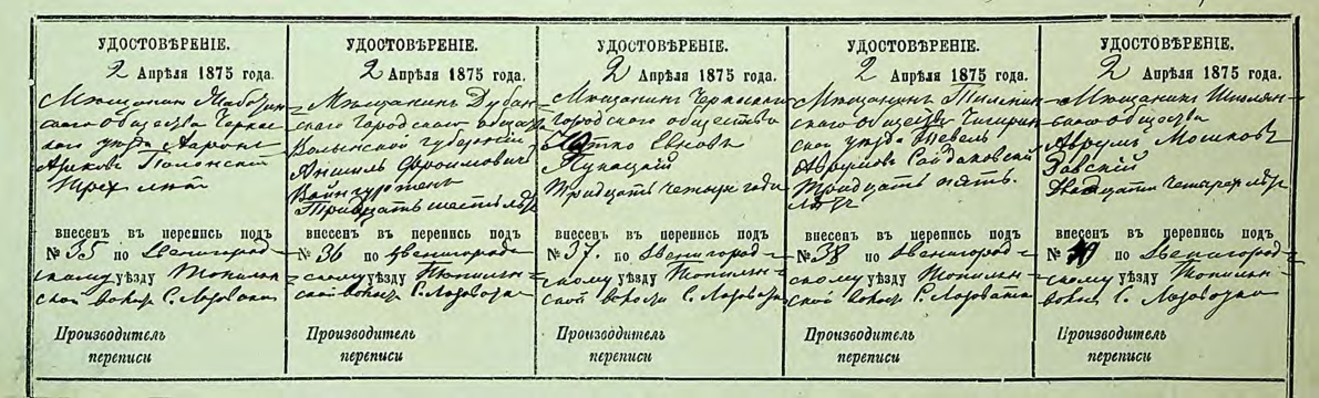 УДОСТОВѢРЕНІЕ.
2 Апрѣля 1875 года.
Мѣщанинъ
скаго Общества Черкас
каго уѣзда Ааронъ
Полонскій
Трех лѣтъ
внесенъ въ перепись подъ
№ 35 по Звенигород=
скому уѣзду Топильн
ской волос С. Лозоватка
Производитель
переписи
УДОСТОВѢРЕНІЕ.
2 Апрѣля 1875 года.
Мѣщанинъ Дубен=
скаго Городскаго общес
Волынской губерніи
Аншиль Фроимовичъ
Вайнгуртенъ
Тридцать шесть лѣт
внесенъ въ перепись подъ
№ 36 по Звенигород=
скому уѣзду Топильн=
ской волос С. Лозоватка
Производитель
переписи
УДОСТОВѢРЕНІЕ.
2 Апрѣля 1875 года.
Мѣщанинъ Черкаскаго
Городскаго общества
Евновъ
Тридцать четыре года
внесенъ въ перепись подъ
№ 37. по Звенигород=
скому уѣзду Топильн=
ской волости С. Лозоватка
Производитель
переписи
УДОСТОВѢРЕНІЕ.
2 Апрѣля 1875 года.
Мѣщанинъ
скаго Общества Чигирин
ской уѣзда Тевель
Сайдаковскій
Тридцать пять.
лѣтъ
внесенъ въ перепись подъ
№ 38 по Звенигород=
скому уѣзду Топильн=
ской волос С. Лозоватка
Производитель
переписи
УДОСТОВѢРЕНІЕ.
2 Апрѣля 1875 года.
Мѣщанинъ Шполян=
скаго Общества
Аврумъ Мошковъ
Двадцати четырех лѣт
внесенъ въ перепись подъ
№ по Звенигород=
скому уѣзду Топильн=
волос С. Лозоватка
Производитель
переписи